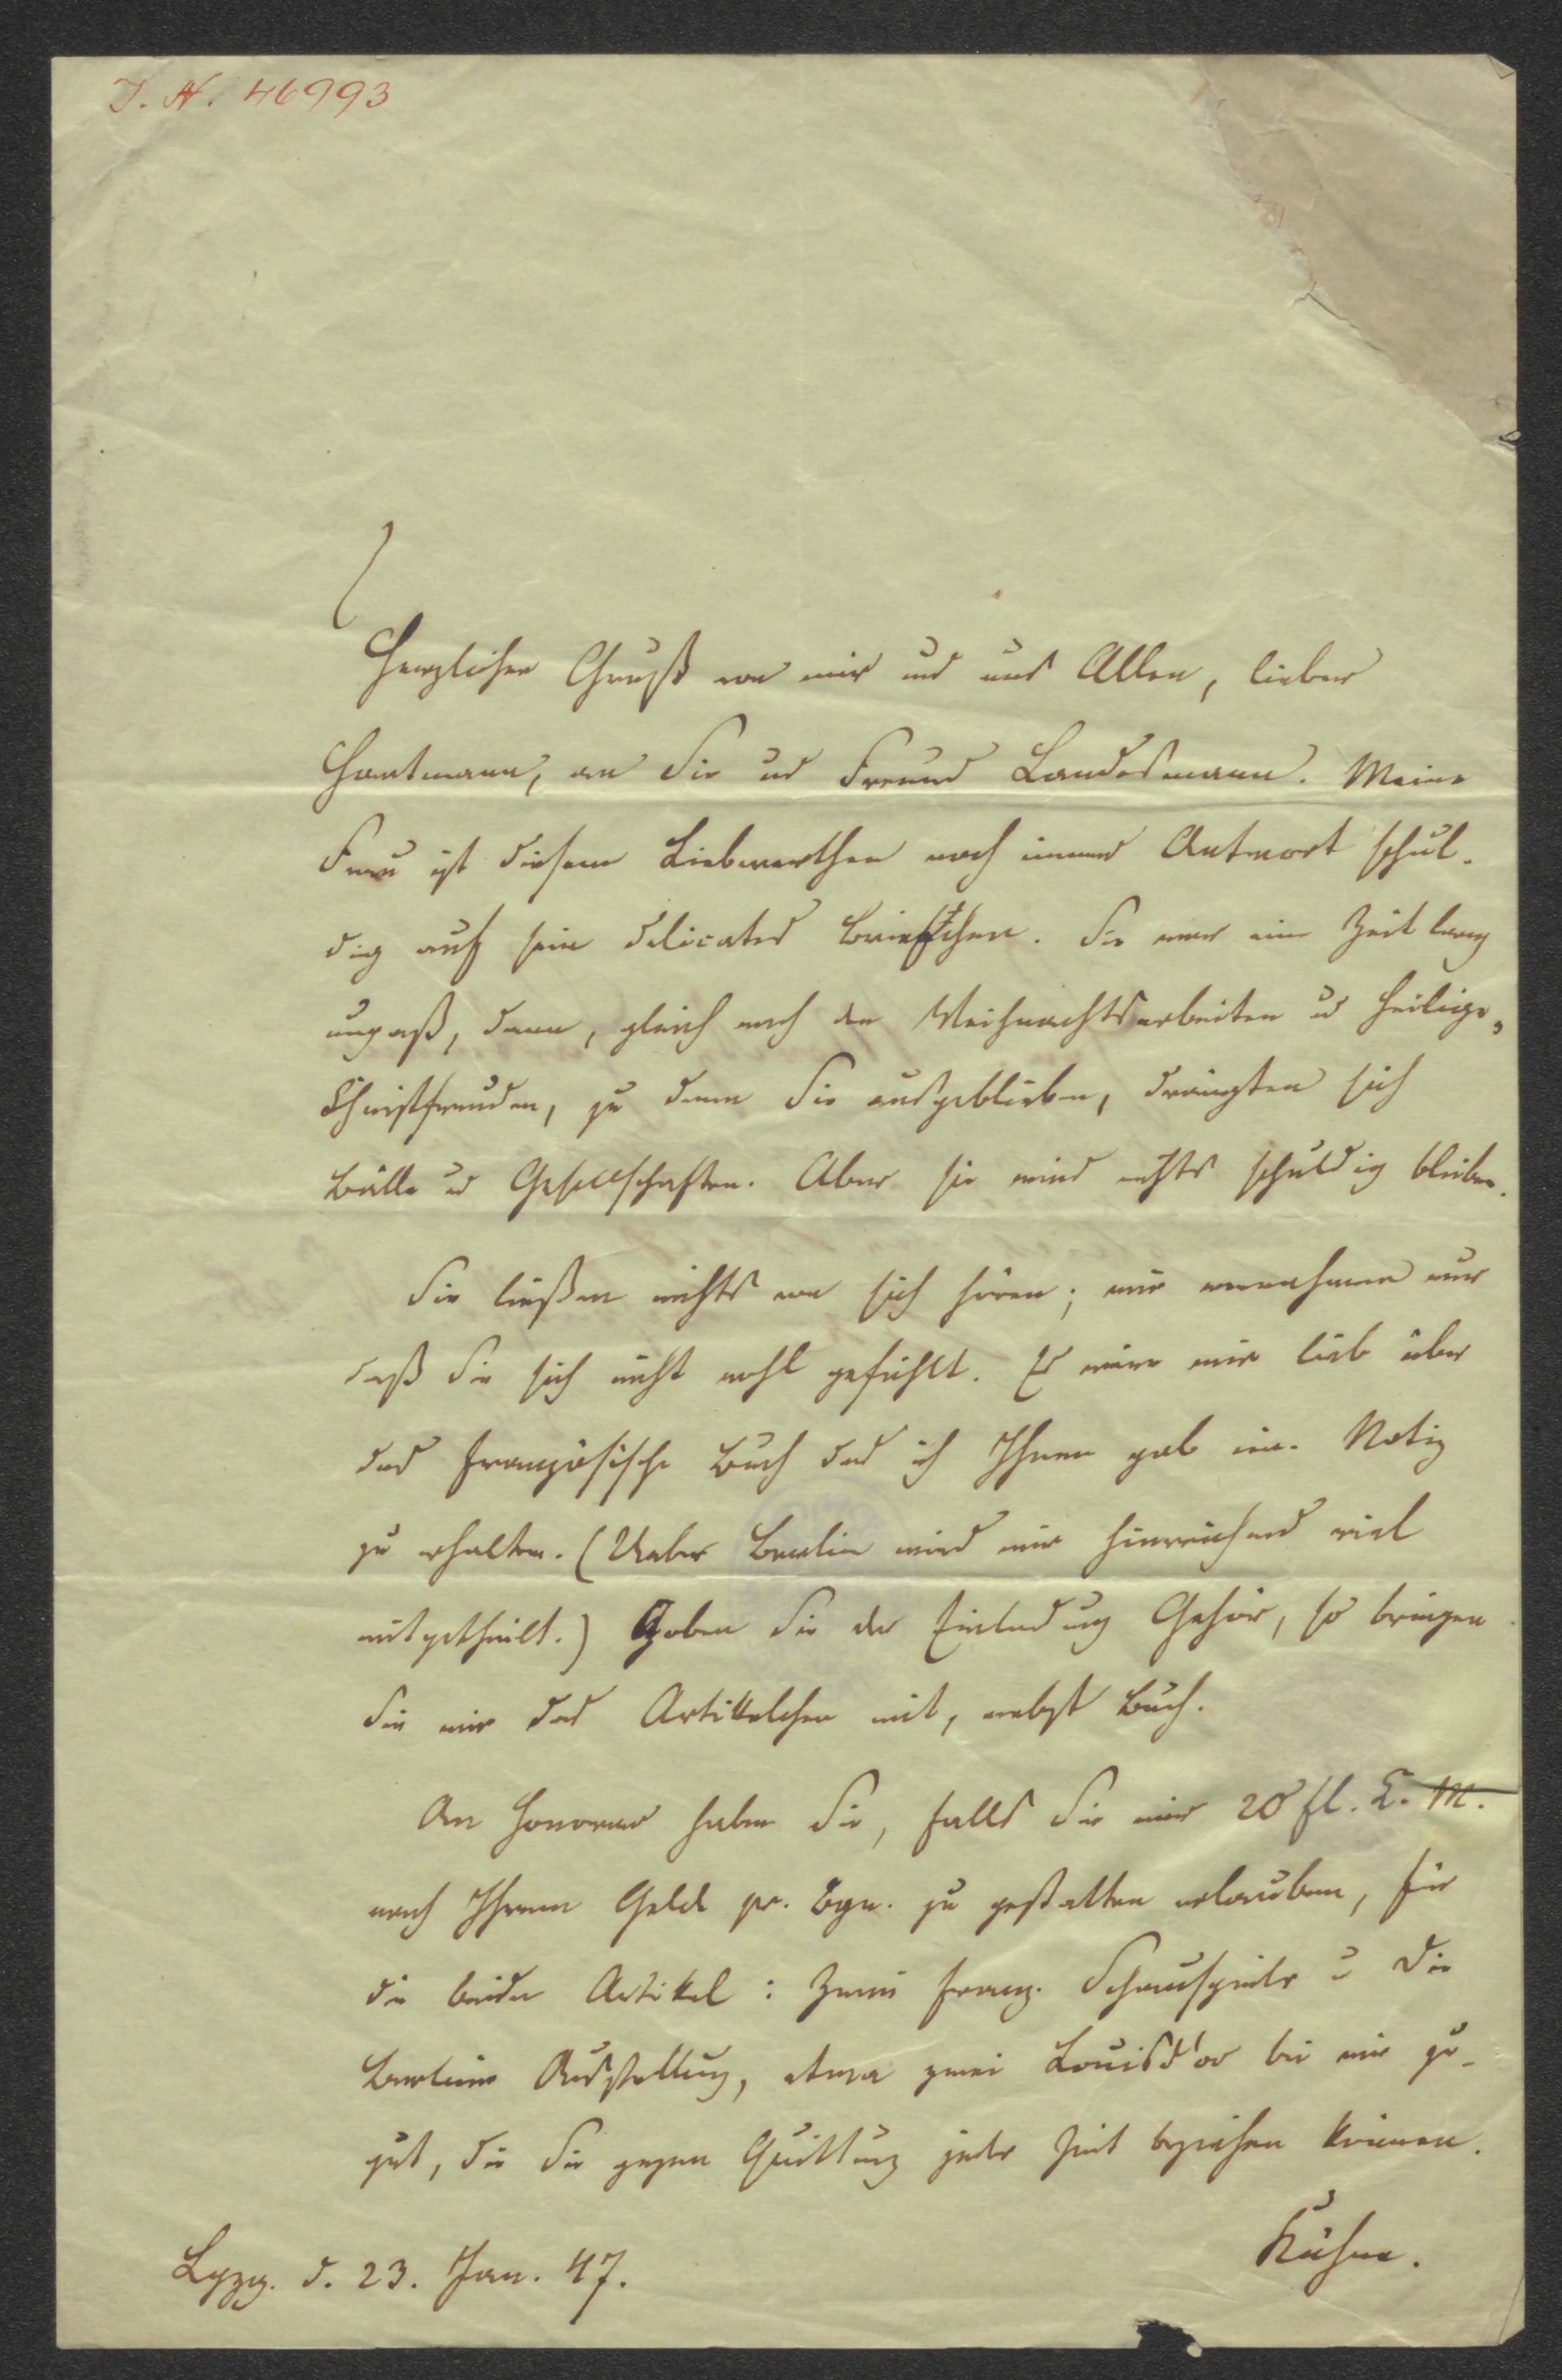 I. N. 46993
Herzlichen Gruß von mir und uns Allen, lieber
Hartmann, an Sie und Freund Landesmann. Meine
Frau ist diesem Liebwerthen noch immer Antwort schul-
dig auf sein delicates Briefchen. Sie war eine Zeit lang
unpaß, dann, gleich nach den Weihnachtsarbeiten und heiligen
Christfreuden, zu denen Sie ausgeblieben, drängten sich
Bälle und Gesellschaften. Aber sie wird nichts schuldig bleiben.
Sie ließen nichts von sich hören; wir vernahmen nur
daß Sie sich nicht wohl gefühlt. Es wäre mir lieb über
das französische Buch das ich Ihnen gab eine Notiz
zu erhalten. (Ueber Berlin wird mir hinreichend viel
mitgetheilt.) Geben Sie der Einladung Gehör, so bringen
Sie mir das Artikelchen mit, nebst Buch.
An Honorar haben Sie, falls Sie mir 20 fl. C. M.
nach Ihrem Gelde pr. Bgn. zu gestatten erlauben, für
die beiden Artikel: Zwei franz. Schauspiele u die
Berliner Ausstellung, etwa zwei Louisd'or bei mir zu-
gut, die Sie gegen Quittung jeder Zeit beziehen können.
Kühne.
Lpzg. d. 23. Jan. 47.